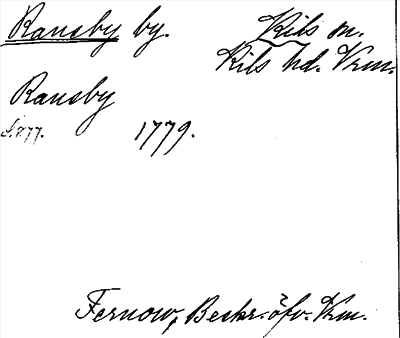 Ransby by. Kils sn.
Kils hd. Vrm.
Ransby
S. 277. 1779.
Fernow, Beskr. öfv. Vrm.